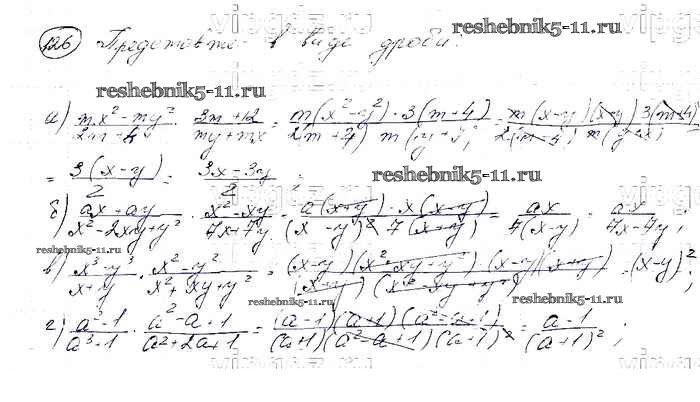 reshebnik5-11.ru
126 Представьте в виде дроби:
reshebnik5-11.ru
а) (mx² - my²)/(2m + 8) · (3m + 12)/(my + mx) = (m(x² - y²) · 3(m + 4))/(2(m + 4) m(y + x)) = (m(x - y)(x + y) 3(m + 4))/(2(m + 4) m(y + x))
= 3(x - y)/2 = (3x - 3y)/2 ; reshebnik5-11.ru
б) (ax + ay)/(x² - 2xy + y²) · (x² - xy)/(7x + 7y) = (a(x + y) · x(x - y))/((x - y)² 7(x + y)) = ax/(7(x - y)) = ax/(7x - 7y) ;
reshebnik5-11.ru
в) (x³ - y³)/(x + y) · (x² - y²)/(x² + xy + y²) = ((x - y)(x² + xy + y²)(x - y)(x + y))/((x + y)(x² + xy + y²)) = (x - y)² ;
reshebnik5-11.ru reshebnik5-11.ru
г) (a² - 1)/(a³ + 1) · (a² - a + 1)/(a² + 2a + 1) = ((a - 1)(a + 1)(a² - a + 1))/((a + 1)(a² - a + 1)(a + 1)²) = (a - 1)/(a + 1)² ;